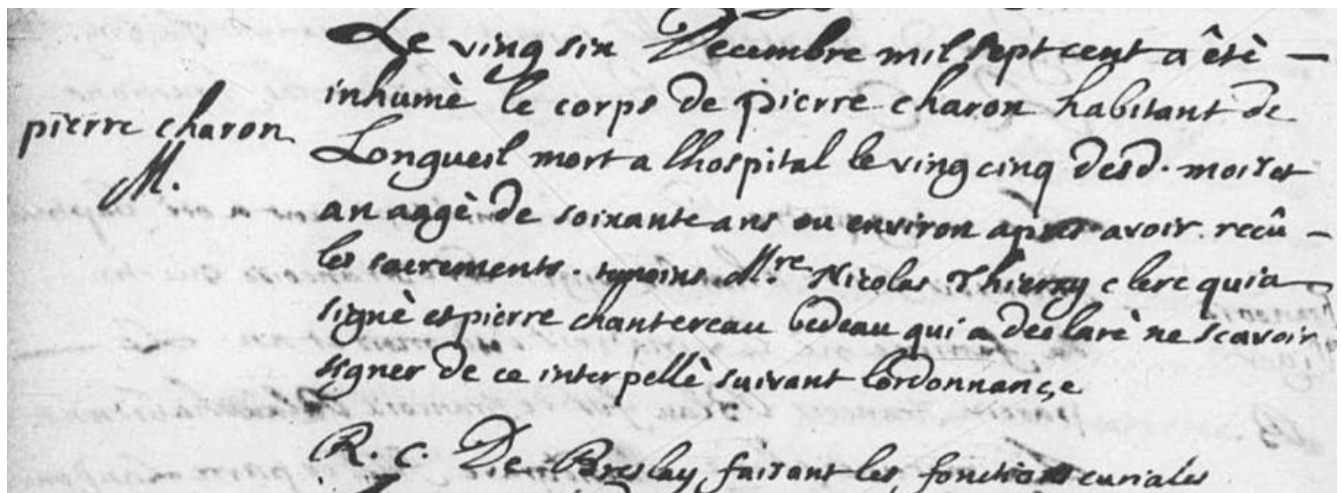 Le vingsix Decembre mil sept cent a êtè —
inhumè le corps de pierre charon habitant de
pierre charon
M.
Longueil mort a lhospital le vingcinq desd. mois et
an aggè de soixante ans ou environ apres avoir recû —
les sacrements. temoins Mre. Nicolas Thierry clerc qui a
signè et pierre chantereau bedeau qui a declarè ne scavoir
signer de ce interpellè suivant lordonnance
R. C. De Breslay faisant les fonctions curiales